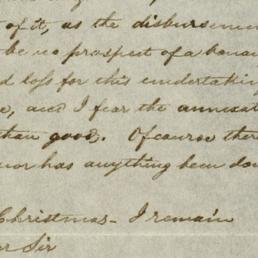 of it, as the disbursemen
be no prospect of a bonus
d loss for this undertaking
e, and I fear the annexat
than good. Of course there
nor has anything been do
Christmas - I remain
r Sir